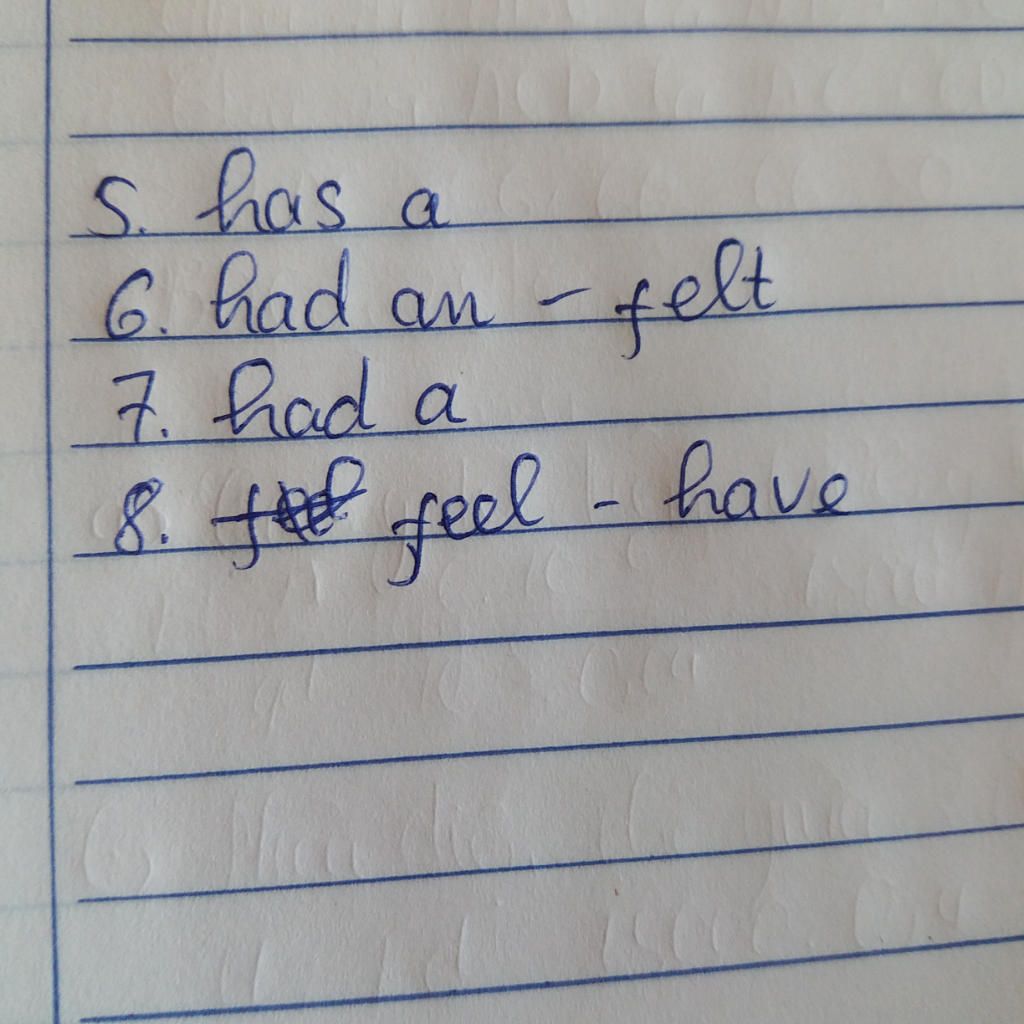 5. has a
6. had an - felt
7. had a
8. feel - have